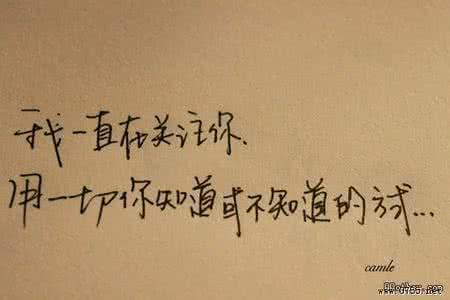 我一直在关注你.
用一切你知道或不知道的方式...
camle
www.0755.net